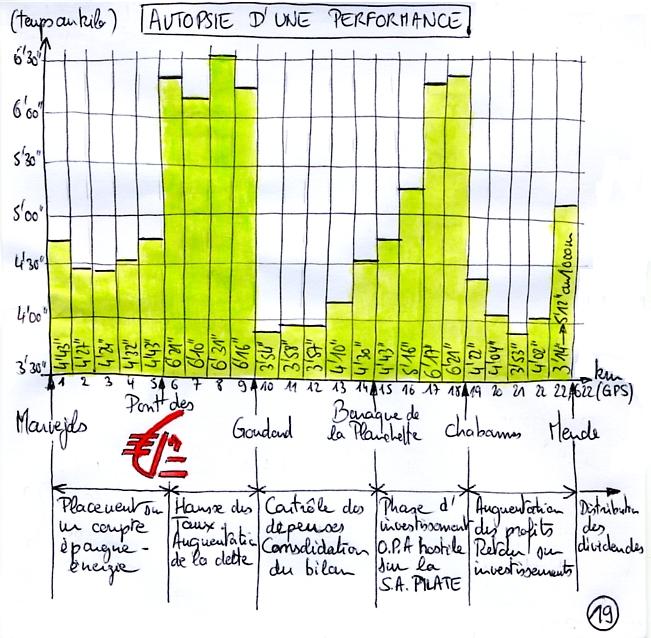 (temps au kilo)
AUTOPSIE D'UNE PERFORMANCE
6'30"
6'00"
5'30"
5'00"
4'30"
4'00"
3'30"
4'43" 4'27" 4'24" 4'32" 4'43" 6'21" 6'10" 6'31" 6'16" 3'54" 3'58" 3'57" 4'10" 4'30" 4'43" 5'16" 6'17" 6'21" 4'22" 4'04" 3'53" 4'02" 3'14" → 5'12" au 1000m
1 2 3 4 5 6 7 8 9 10 11 12 13 14 15 16 17 18 19 20 21 22 22,622 km (GPS)
Marvejols
Pont des
Goudard
Baraque de
la Planchette
Chabannes
Mende
Placement sur
un compte
épargne -
énergie
Hausse des
Taux.
Augmentation
de la dette
Contrôle des
dépenses
Consolidation
du bilan
Phase d'
investissement
O.P.A hostile
sur la
S.A. PILATE
Augmentation
des profits
Retour sur
investissements
Distribution
des
dividendes
19